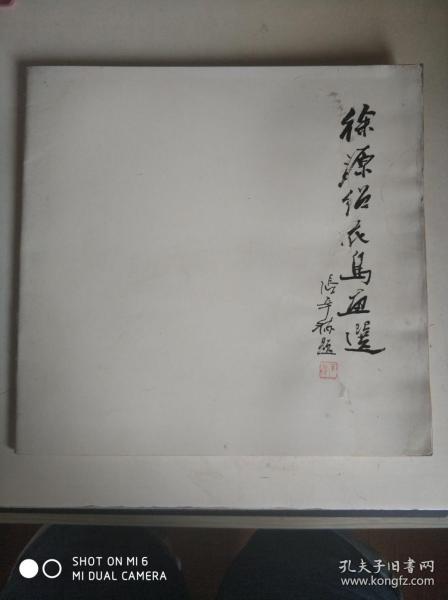 徐源绍花鸟画選
陆平题
SHOT ON MI 6
MI DUAL CAMERA
孔夫子旧书网
www.kongfz.com